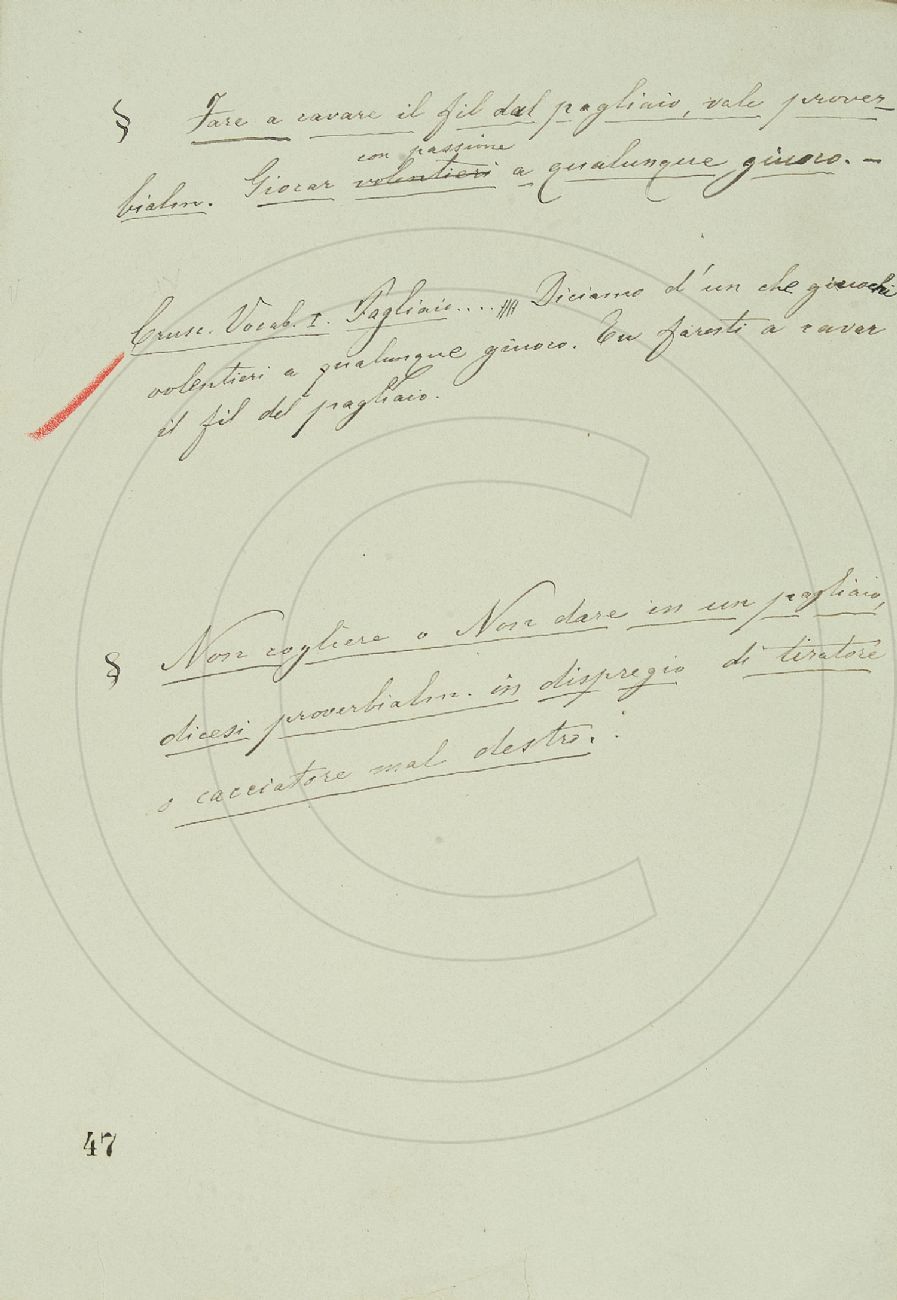 § Fare a cavare il fil dal pagliaio, vale prover-
con passione
bialm. Giocar volentieri a qualunque giuoco. –
Crusc. Vocab. I. Pagliaio.... //// Diciamo d'un che giuochi
volentieri a qualunque giuoco. Tu faresti a cavar
il fil del pagliaio.
§ Non cogliere o Non dare in un pagliaio,
dicesi proverbialm. in dispregio di tiratore
o cacciatore mal destro.
47